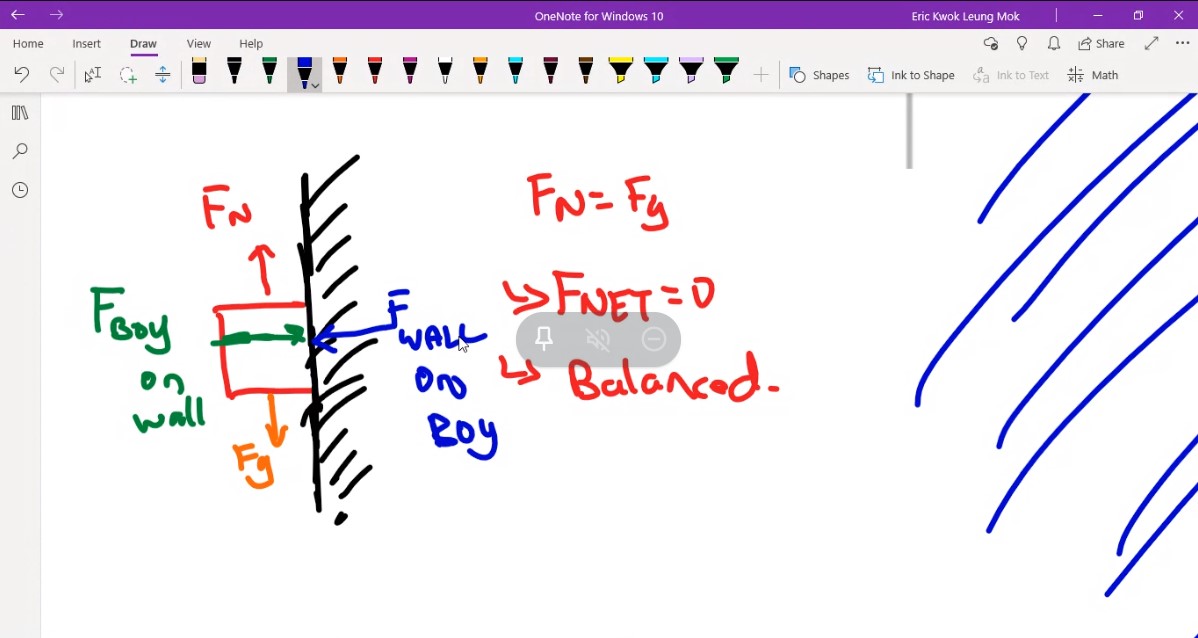 OneNote for Windows 10
Eric Kwok Leung Mok
Home
Insert
Draw
View
Help
Share
Shapes
Ink to Shape
Ink to Text
Math
FN
FBOY
on
wall
Fg
F
WALL
ON
BOY
FN = Fg
↳ FNET = 0
↳ Balanced.